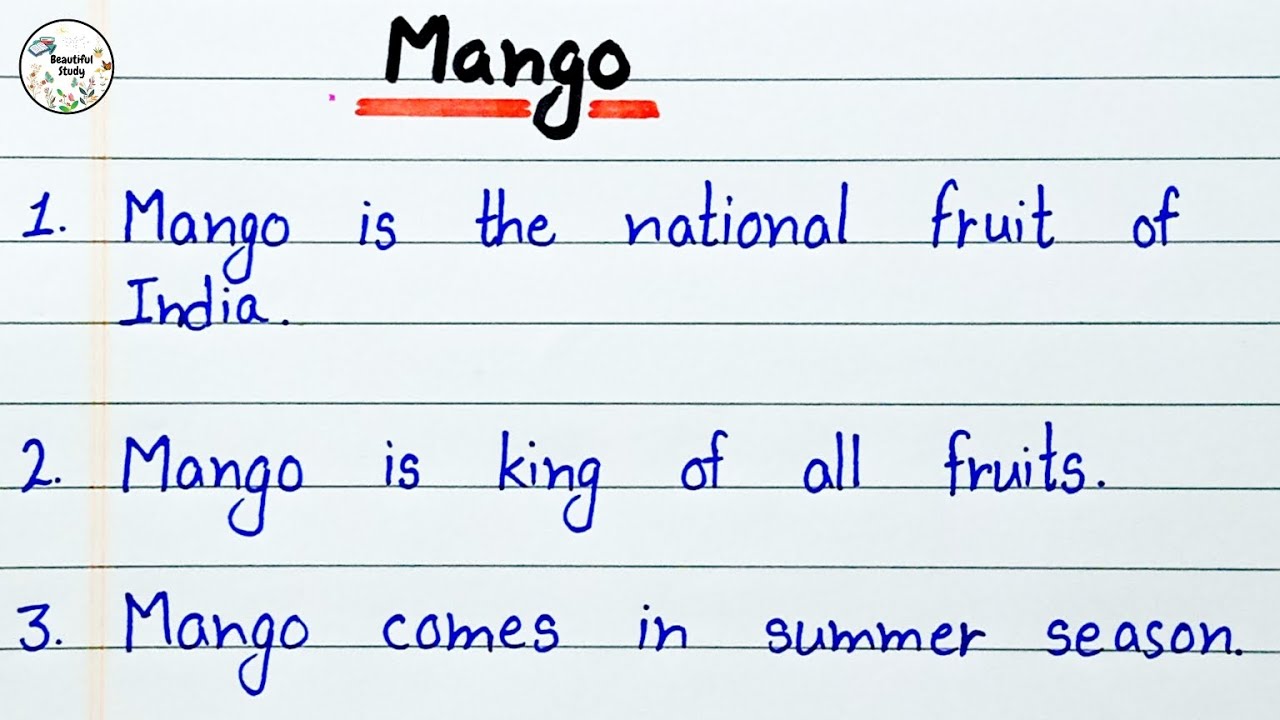 Beautiful
Study
Mango
1. Mango is the national fruit of
India.
2. Mango is king of all fruits.
3. Mango comes in summer season.